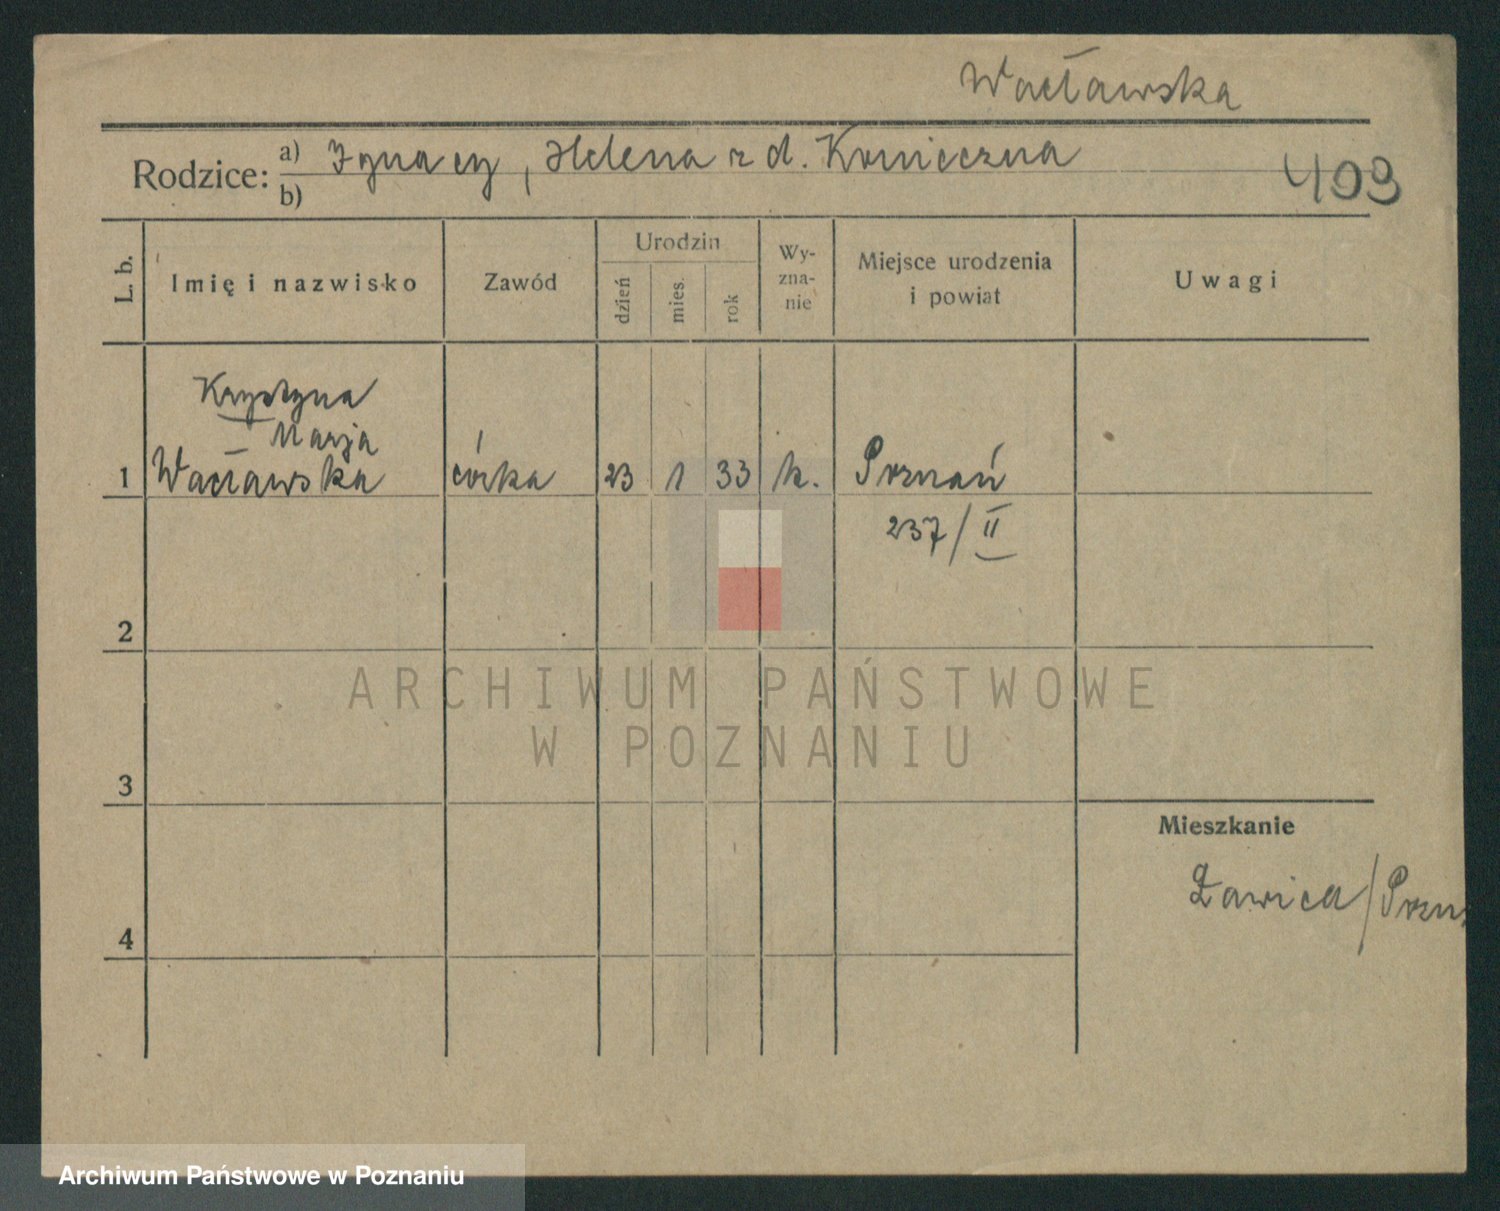 Wacławska
Rodzice: a) Ignacy, Helena z d. Konieczna
b)
409
L. b.
Imię i nazwisko
Zawód
Urodzin
dzień
mies.
rok
Wy-
zna-
nie
Miejsce urodzenia
i powiat
Uwagi
Krystyna
Marja
1 Wacławska córka 23 1 33 k. Poznań
237/II
2
3
4
Mieszkanie
Ławica/Pozn.
ARCHIWUM PAŃSTWOWE
W POZNANIU
Archiwum Państwowe w Poznaniu